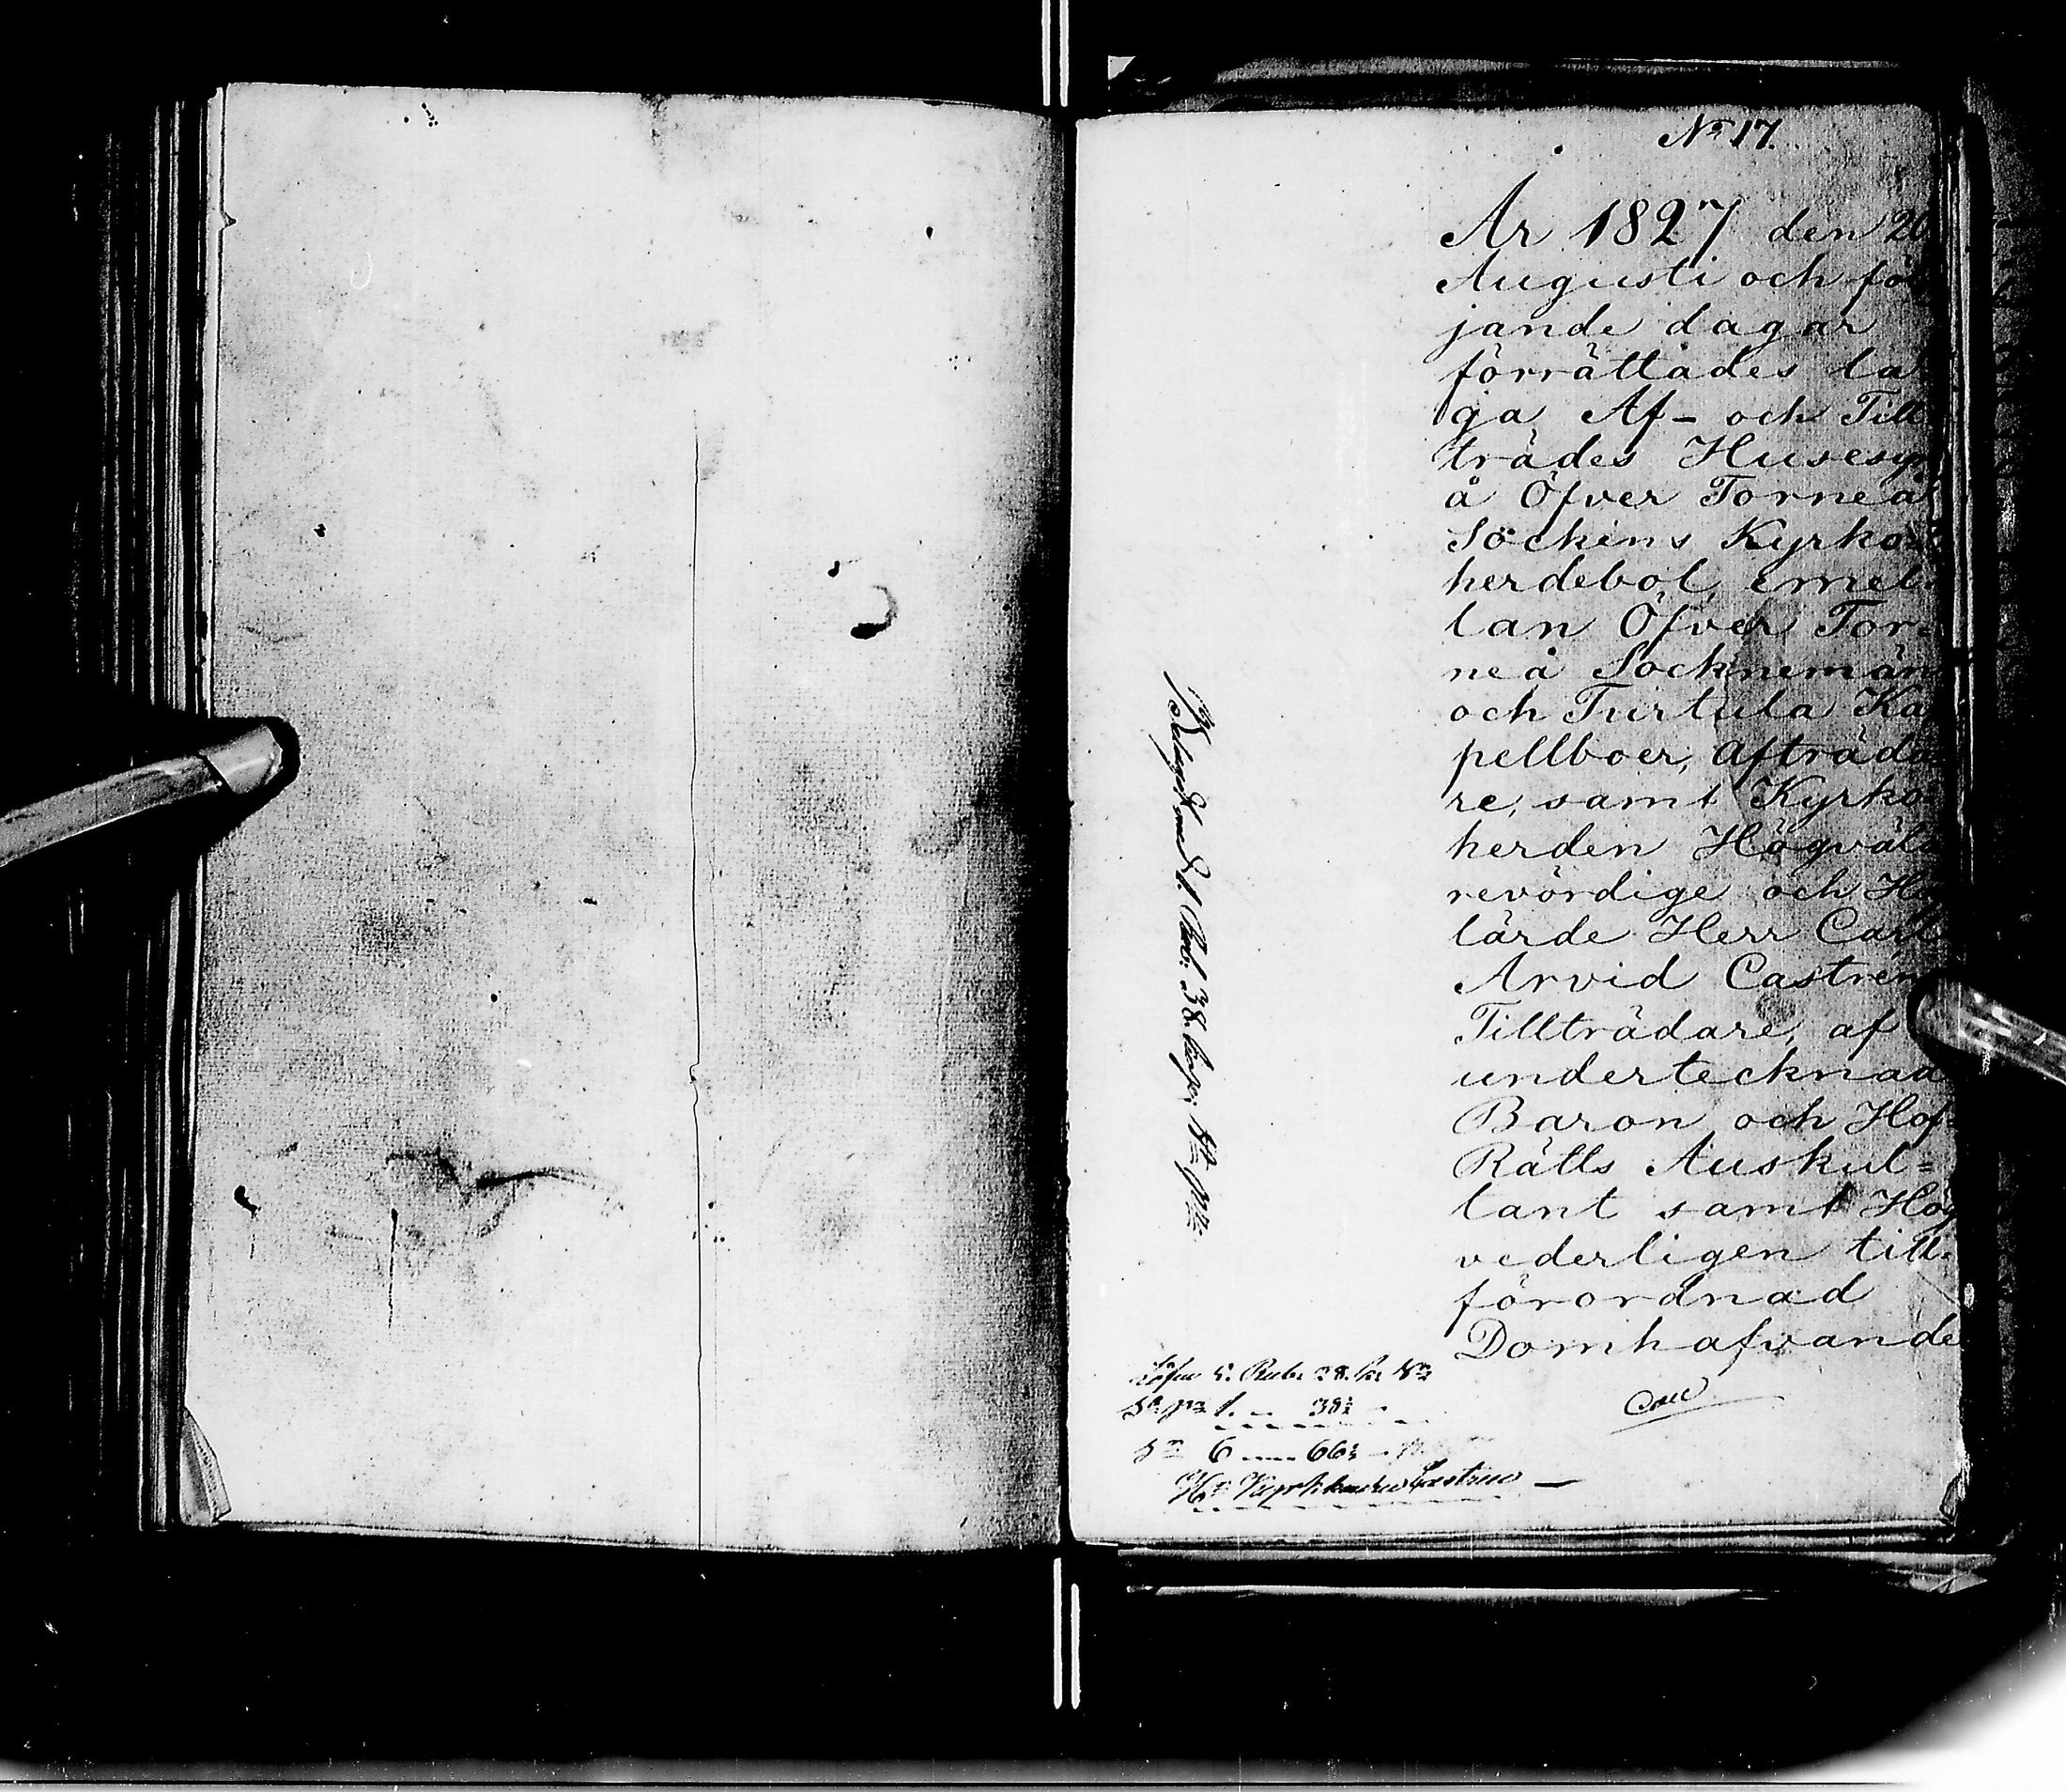 No 17.
År 1827 den 20
Augusti och föl
jande dagar
förrättades la
ga Af- och Till
trädes Husesyn
å Öfver Torneå
Sockens Kyrko-
herdebol, emel-
lan Öfver Tor-
neå Socknemän
och Turtula Ka
pellboer, afträda
re, samt Kyrko
herden Högväl
revördige och Hög
lärde Herr Carl
Arvid Castrén
Tillträdare, af
undertecknad
Baron och Hof-
Rätts Auskul-
tant samt Hög
vederligen till-
förordnad
Domhafvande
Rub. 38. Cop.
Lösen 5. Rub. 28. k. Sr
1. 38½
6 66½
Hr Kyrkoherden Castren